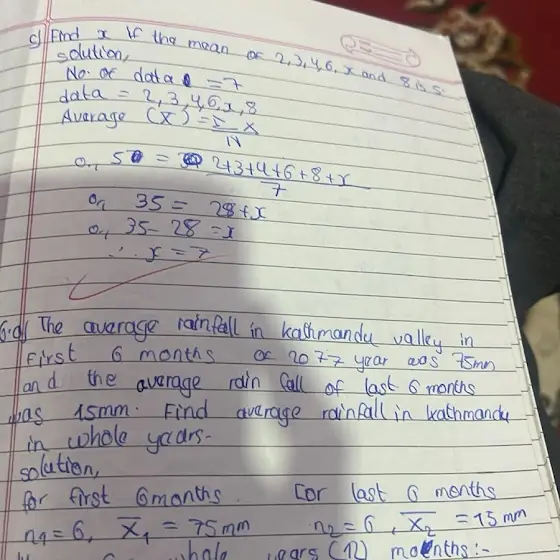 c) Find x if the mean of 2,3,4,6, x and 8 is 5.
solution,
No. of data = 7
data = 2,3,4,6,x,8
Average (X) = Σ X
N
or, 5 = 2+3+4+6+8+x
7
or, 35 = 28+x
or, 35-28 = x
∴ x = 7
6.a) The average rainfall in kathmandu valley in
First 6 months of 2077 year was 75mm
and the average rain fall of last 6 months
was 15mm. Find average rainfall in kathmandu
in whole years-
solution,
for first 6months For last 6 months
n1 = 6, X̅1 = 75mm n2 = 6, X̅2 = 15mm
whole years (12) months:-